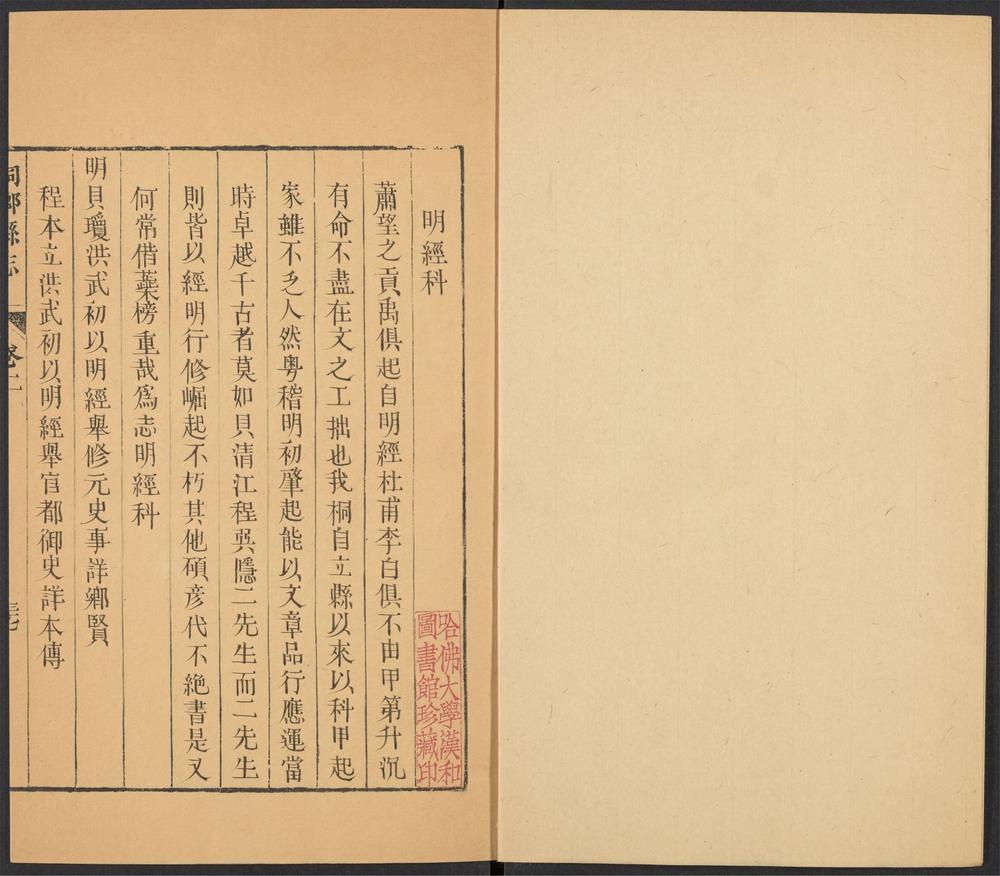 明經科
蕭望之貢禹俱起自明經杜甫李白俱不由甲第升沉
有命不盡在文之工拙也我桐自立縣以來以科甲起
家雖不乏人然粵稽明初肇起能以文章品行應運當
時卓越千古者莫如貝清江程巽隱二先生而二先生
則皆以經明行修崛起不朽其他碩彥代不絕書是又
何常借蘂榜重哉爲志明經科
明貝瓊洪武初以明經舉修元史事詳鄉賢
程本立洪武初以明經舉官都御史詳本傳
桐鄉縣志
卷二
哈佛大學漢和
圖書館珍藏印